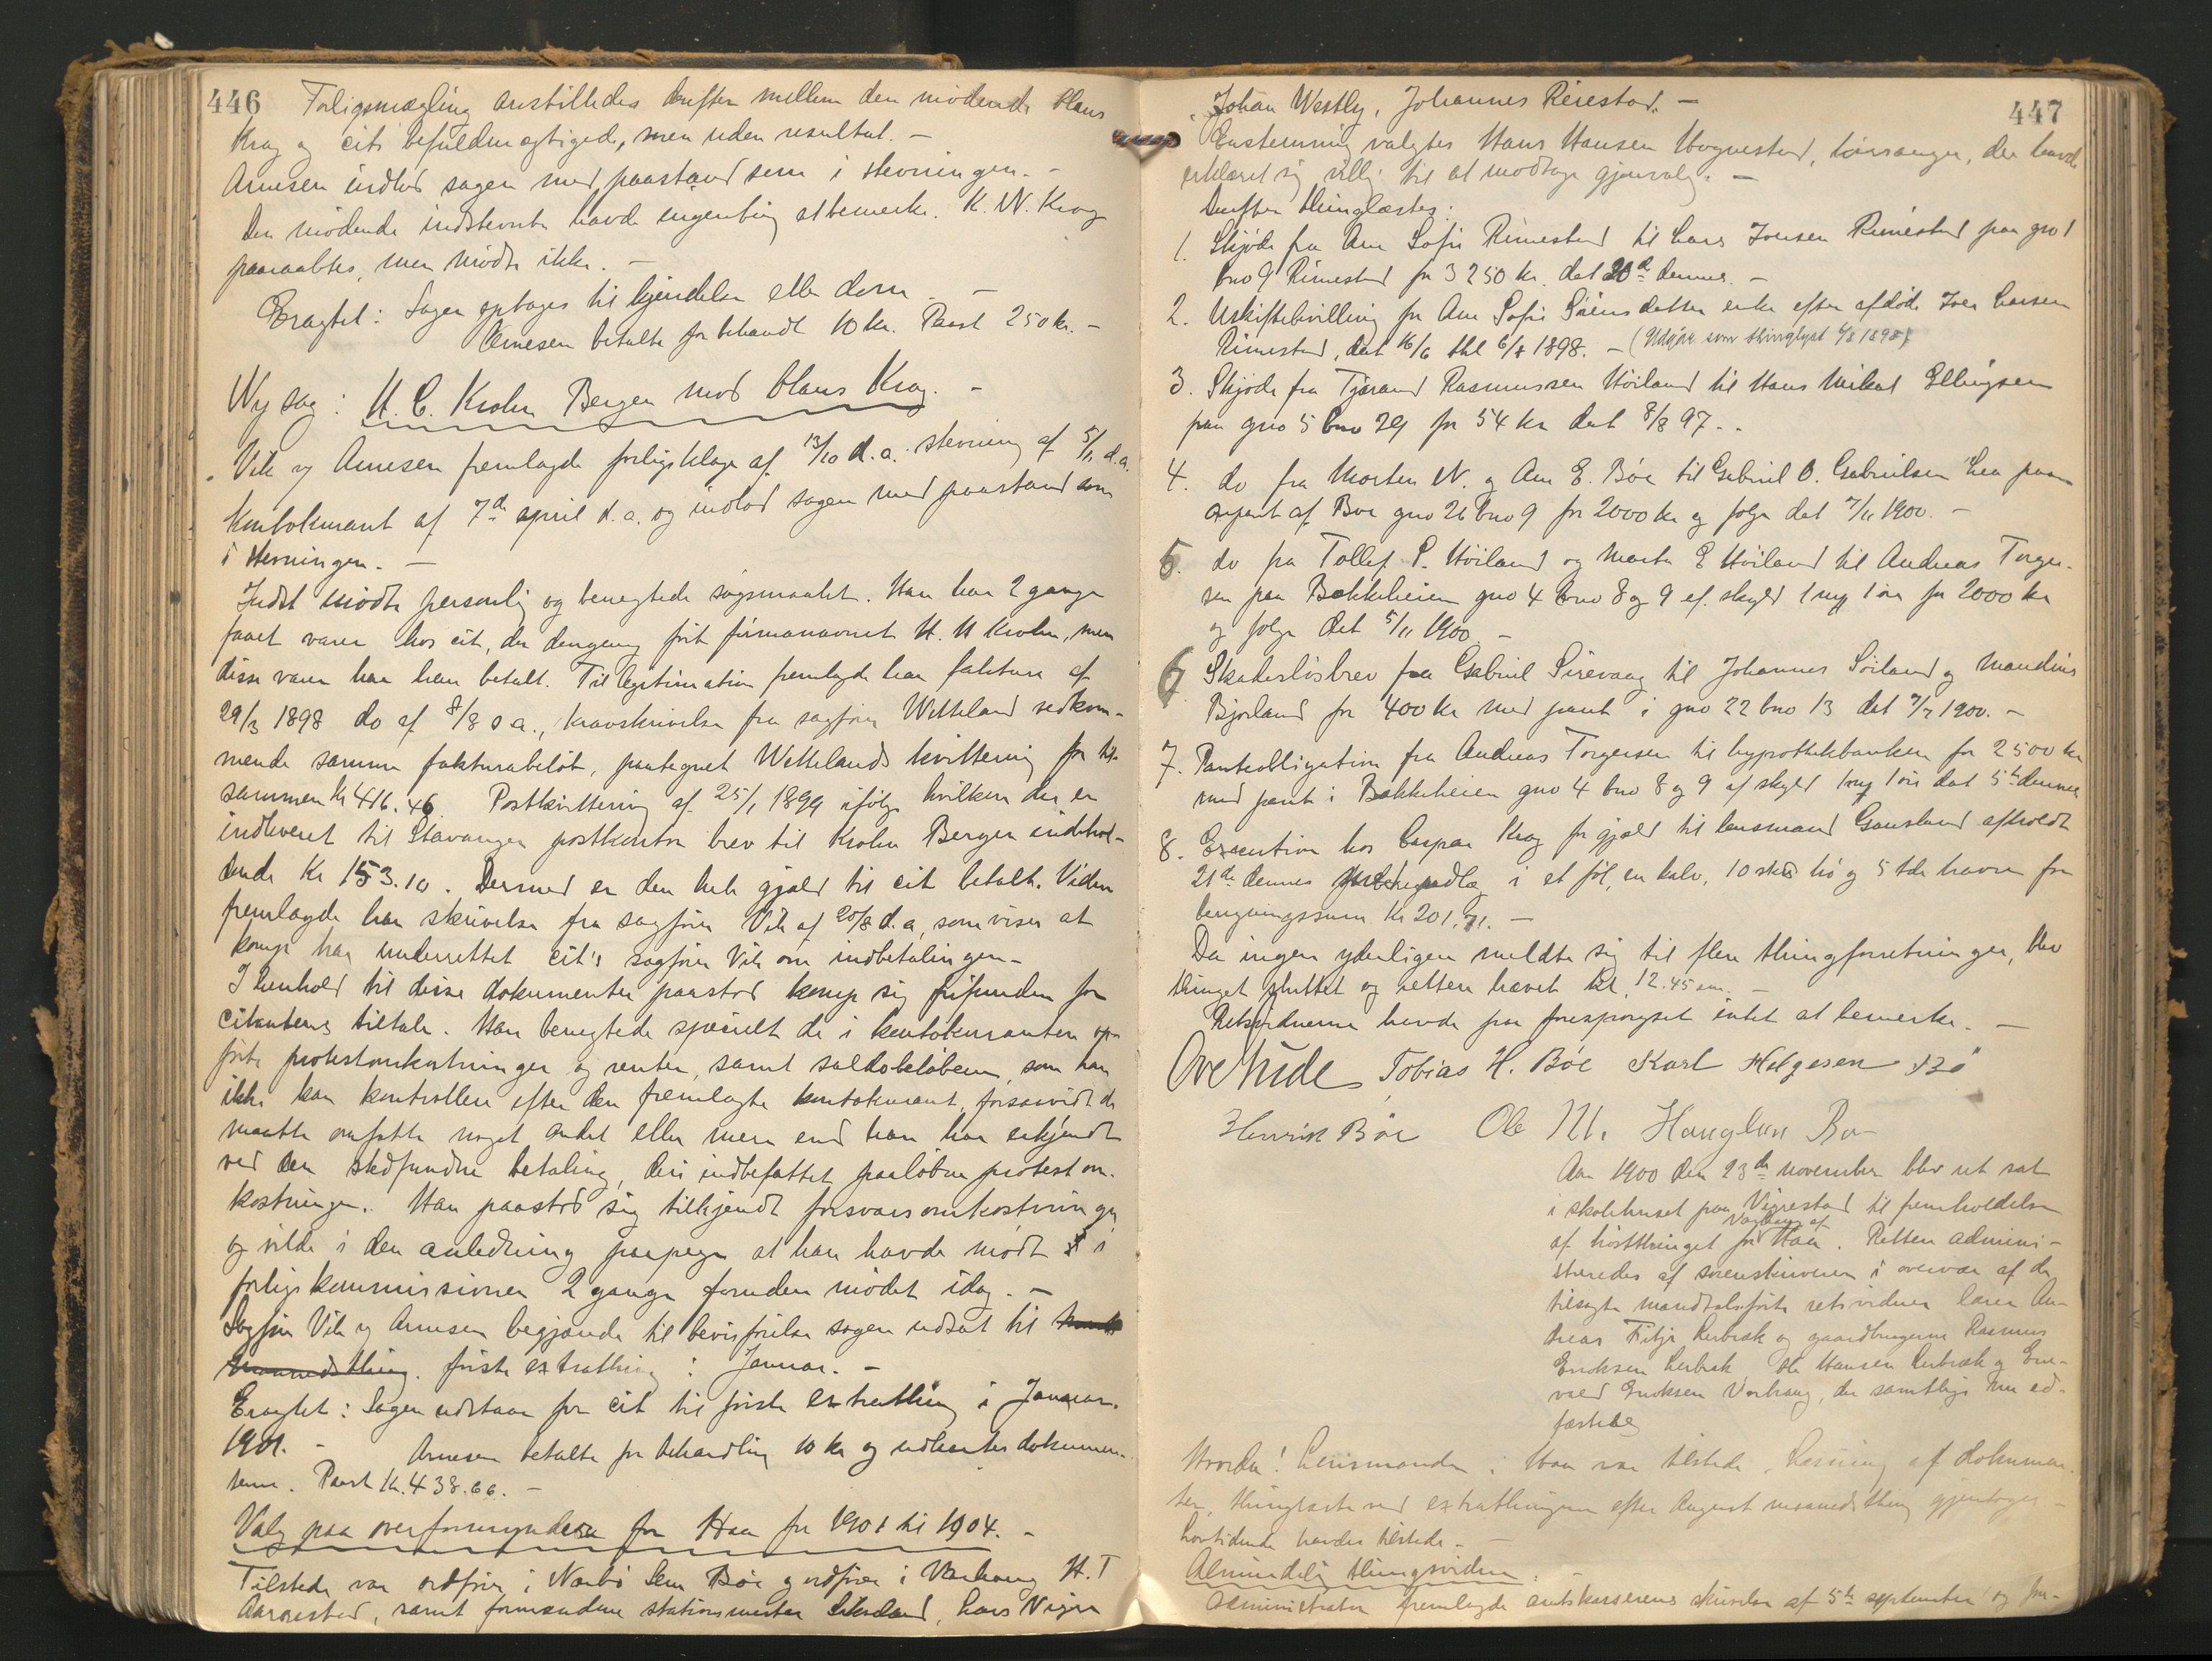 446 Forligsmægling anstilledes derefter mellem den mödende Claus
Krag og cits befuldmægtigede, men uden resultat. —
Arnesen indlod sagen med paastand som i stevningen. —
Den mödende indstevnte havde ingenting at bemerke. K. N. Krag
paaraabtes, men mödte ikke. —
Eragtet: Sagen optages til kjendelse eller dom. —
Arnesen betalte for behandl 10 kr. Paast 250 kr. —
Ny sag: H. C. Krohn Bergen mod Claus Krag. —
Vik og Arnesen fremlagde forligsklage af 13/10 d. a. stevning af 5/11 d.a.
Kontokurant af 7de april d. a. og indlod sagen med paastand som
i stevningen. —
Indst mödte personlig og benegtede sögsmaalet. Han har 2 gange
faaet varer hos cit, der dengang fört firmanavnet H. H Krohn, men
disse varer har han betalt. Til legitimation fremlagde han faktura af
29/3 1898 do af 8/8 s a., kravskrivelse fra sagförer Wetteland vedkom-
mende samme fakturabelöb, paategnet Wettelands kvittering for til-
sammen Kr 416.46. Postkvittering af 25/1 1899 ifölge hvilken der er
indleveret til Stavanger postkontor brev til Krohn Bergen indehol-
dende Kr 153.10. Dermed er den hele gjæld til cit betalt. Videre
fremlagde han skrivelse fra sagförer Vik af 20/8 d. a, som viser at
komp har underrettet cit's sagförer Vik om indbetalingen. —
I Henhold til disse dokumenter paastod komp sig frifunden for
citantens tiltale. Han benegtede specielt de i kontokuranten op-
förte protestomkostninger og renter, samt saldobelöbene, som han
ikke kan kontrollere efter den fremlagte kontokurant, forsaavidt de
maatte omfatte noget andet eller mere end han har erkjendt
ved den stedfundne betaling, deri indbefattet paalöbne protestom-
kostninger. Han paastod sig tilkjendt forsvarsomkostninger
og vilde i den anledning paapege at han havde mödt i
forligskommissionen 2 gange foruden mödet idag. —
Sagförer Vik og Arnesen begjærede til bevisförelse sagen udsat til
maanedsthing. förste extrathing i Januar. —
Eragtet: Sagen udstaar for cit til förste extrathing i Januar
1901. — Arnesen betalte for behandling 10 kr og udlaantes dokumen-
terne. Paast Kr. 438.66. —
Valg paa overformyndere for Haa for 1901 til 1904. —
Tilstede var ordförer i Nærbö Sem Böe og ordförer i Varhaug H. T
Aarrestad, samt formændene stationsmester , Lars Vigre
447
Johan Westly, Johannes Reiestad. —
Enstemmig valgtes Hans Hansen Hognestad, , der havde
erklæret sig villig til at modtage gjenvalg. —
Derefter thinglæstes:
1. Skjöde fra Ane Sofie Rimestad til Lars Iversen Rimestad paa gno 1
bno 9 Rimestad for 3250 kr. dat 20de dennes. —
2. Uskiftebevilling for Ane Sofie Sörensdatter enke efter afdöde Iver Larsen
Rimestad, dat 16/6 thl 6/8 1898. — (Udgåe som thinglyst 6/8 1898)
3. Skjöde fra Tjöran Rasmussen Höiland til Hans Mikal Ellingsen
paa gno 5 bno 29 for 54 kr dat 8/8 97. .
4. do fra Morten N. og Ane E. Böe til Gabriel O. Gabrielsen Lea paa
en part af Böe gno 26 bno 9 for 2000 kr og folge dat 7/11 1900. —
5. do fra Tollef P. Höiland og Marta E Höiland til Andreas Torger-
sen paa Bakkeheien gno 4 bno 8 og 9 af skyld 1 mrk 1 öre for 2000 kr
og folge dat 5/11 1900. —
6 Skadeslösbrev fra Gabriel Sirevaag til Johannes Söiland og Maudius
Bjorland for 400 kr med pant i gno 22 bno 13 dat 7/7 1900. —
7. Panteobligation fra Andreas Torgersen til hypothekbanken for 2500 kr
med pant i Bakkeheien gno 4 bno 8 og 9 af skyld 1 mrk 1 öre dat 5te dennes
8. Execution hos Caspar Krag for gjæld til lensmand Gausland afholdt
21de dennes i et föl, en kalv, 10 skd hö og 5 tdr havre for
beregningssum Kr 201.71. —
Da ingen yderligere meldte sig til flere thingforretninger, blev
thinget sluttet og retten hævet kl. 12.45 em. —
Retsvidnerne havde paa forespörgsel intet at bemerke. —
Ove Hide Tobias H. Böe Karl Helgesen Bö
Henrik Böe Ole M. Hauglun Bö
Aar 1900 den 23de november blev ret sat
i skolehuset paa Vigrestad til fremholdelse
Varhaug af
af höstthinget for Haa. Retten admini-
streredes af sorenskriveren i overvær af de
tilsagte mandtalsförte retsvidner lærer An-
dreas Fitje Lerbræk og gaardbrugerne Rasmus
Eriksen Lerbræk Ole Hansen Lerbræk og En-
vald Eriksen Varhaug, der samtlige nu ed-
fæstedes
Hvorda! Lensmanden i Haa var tilstede, Læsning af dokumen-
ter, thinglæste ved extrathingene efter August maanedsthing gjentoges —
Lovtidende havdes tilstede. —
Almindelig thingsvidne. —
Administrator fremlagde amtskassererens skrivelse af 5te september og fre-